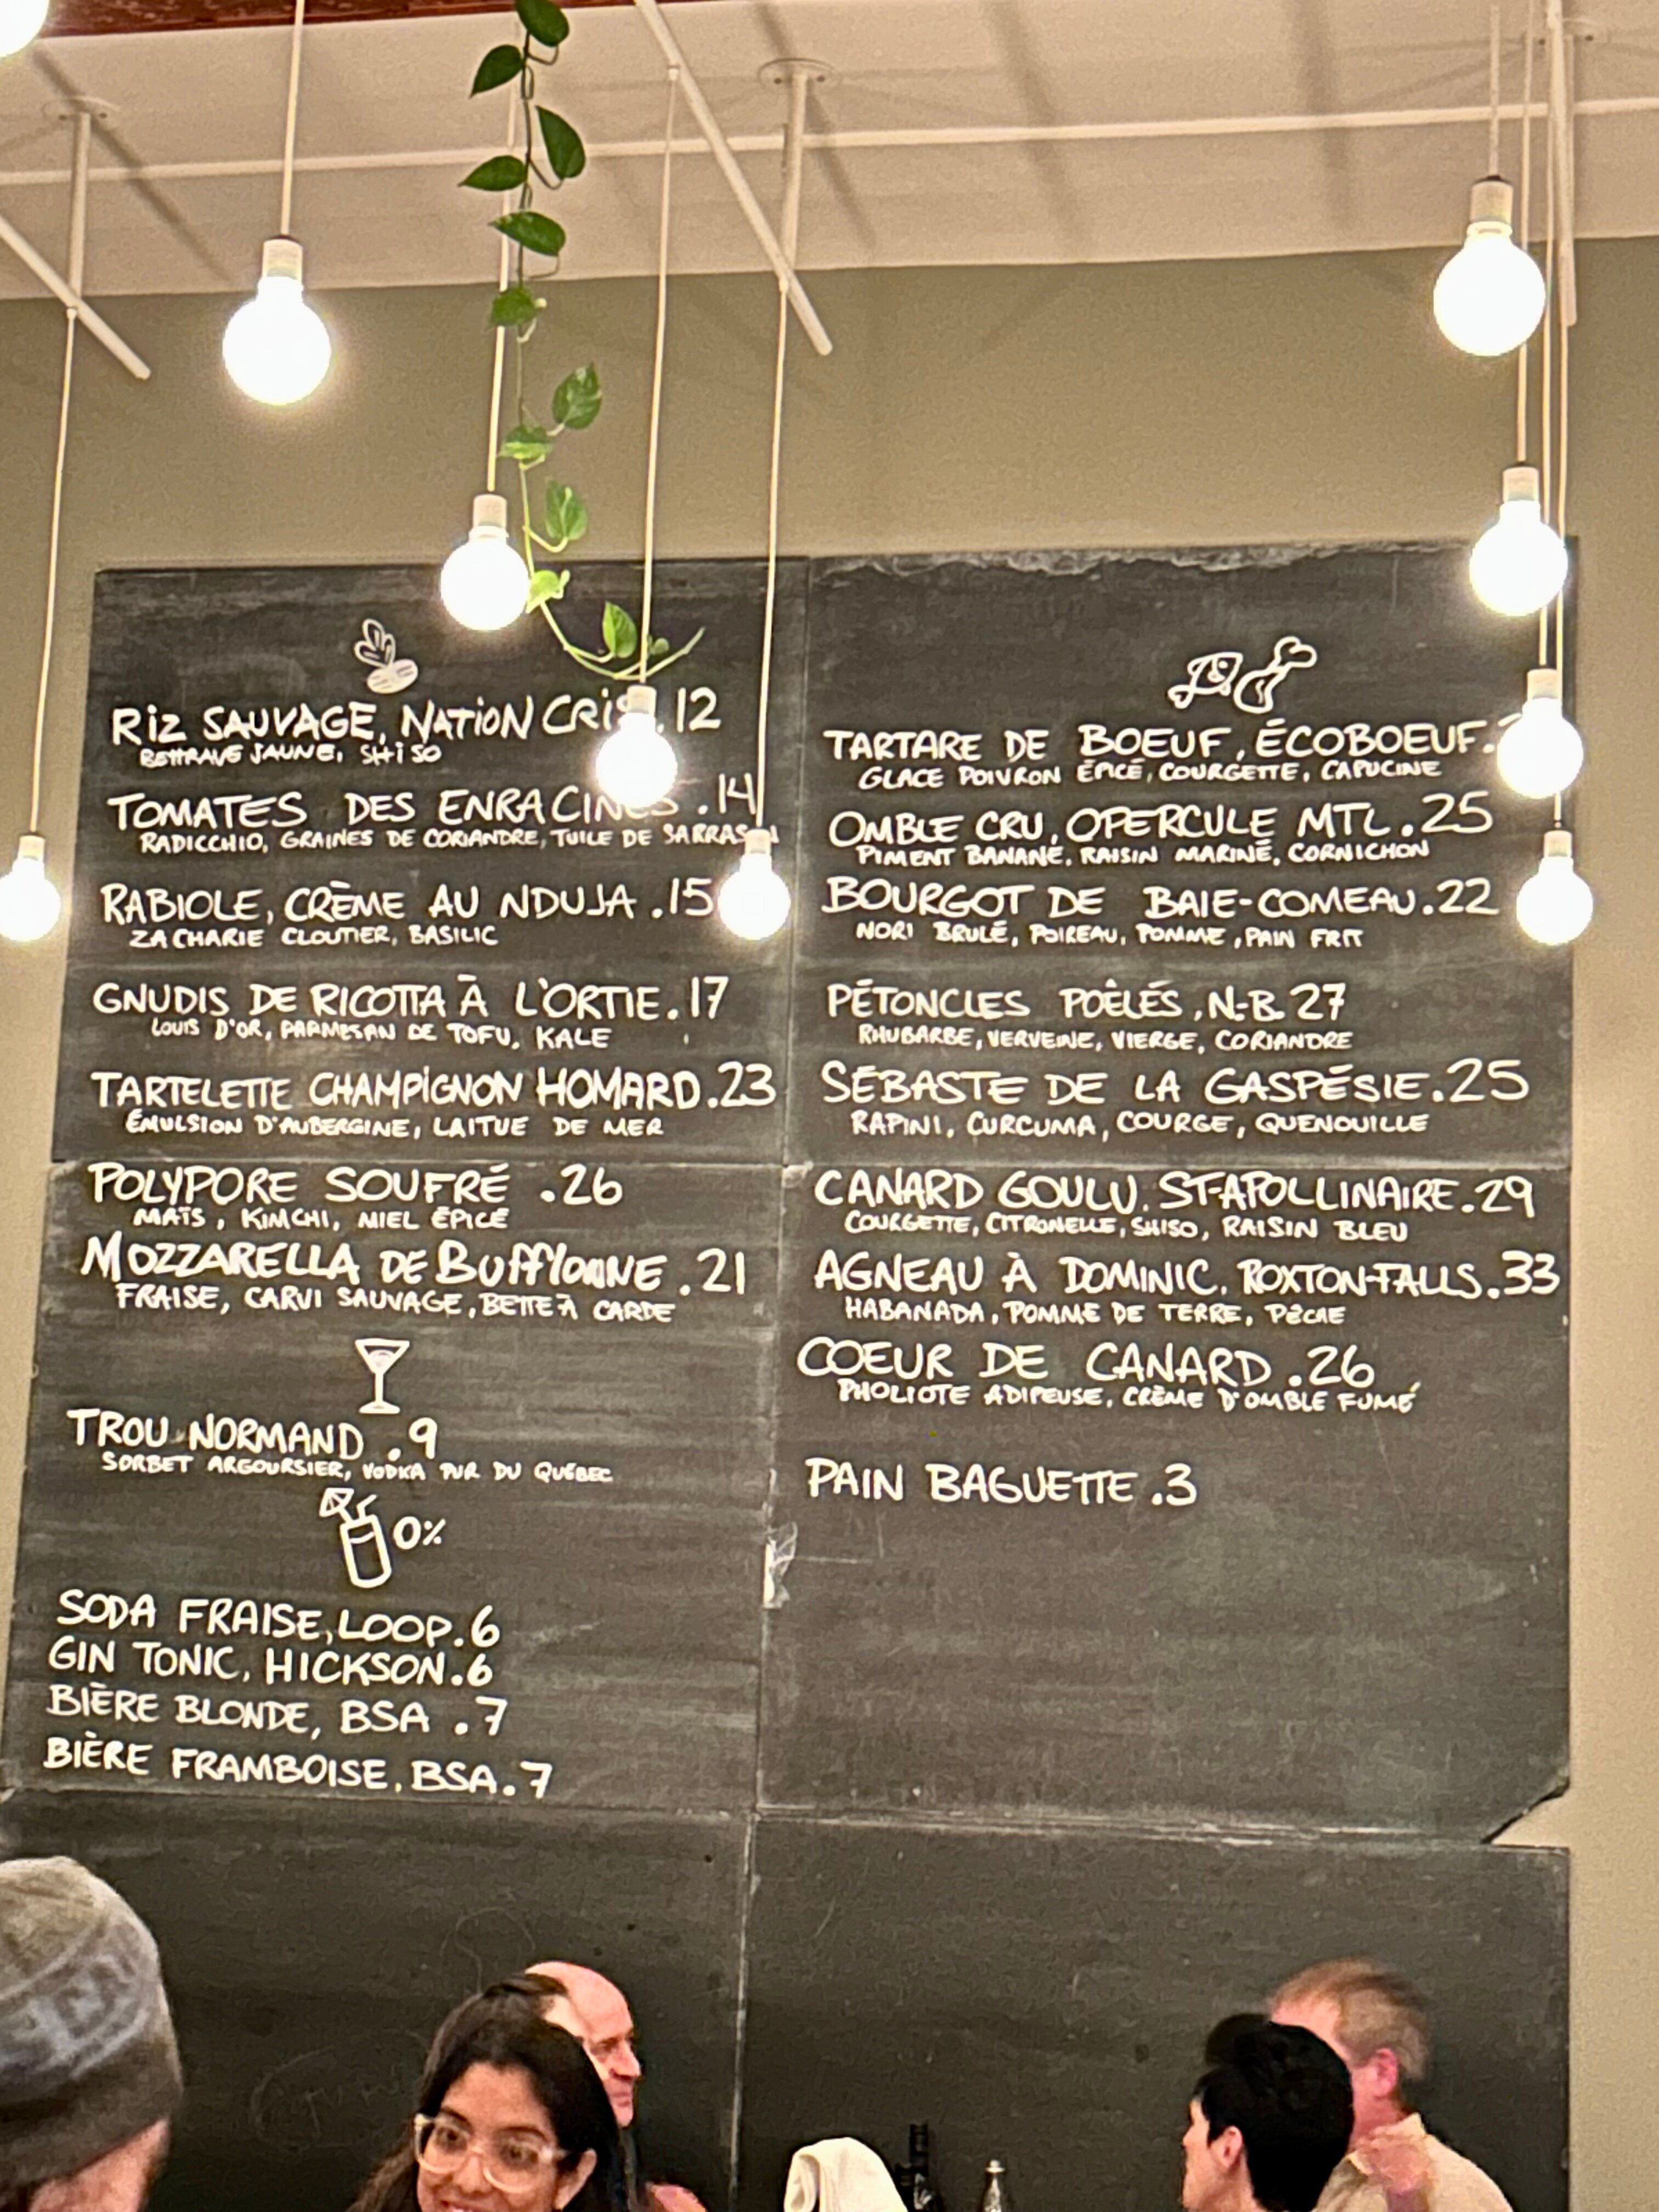 RIZ SAUVAGE, NATION CRIE.12
BETTRAVE JAUNE, SHISO
TOMATES DES ENRACINÉS.14
RADICCHIO, GRAINES DE CORIANDRE, TUILE DE SARRASIN
RABIOLE, CRÈME AU NDUJA.15
ZACHARIE CLOUTIER, BASILIC
GNUDIS DE RICOTTA À L'ORTIE.17
LOUIS D'OR, PARMESAN DE TOFU, KALE
TARTELETTE CHAMPIGNON HOMARD.23
ÉMULSION D'AUBERGINE, LAITUE DE MER
POLYPORE SOUFRÉ .26
MAÏS, KIMCHI, MIEL ÉPICÉ
MOZZARELLA DE BUFFLONNE.21
FRAISE, CARVI SAUVAGE, BETTE À CARDE
TROU NORMAND .9
SORBET ARGOURSIER, VODKA PUR DU QUÉBEC
0%
SODA FRAISE, LOOP.6
GIN TONIC, HICKSON.6
BIÈRE BLONDE, BSA .7
BIÈRE FRAMBOISE, BSA.7
TARTARE DE BOEUF, ÉCOBOEUF.
GLACE POIVRON ÉPICÉ, COURGETTE, CAPUCINE
OMBLE CRU, OPERCULE MTL.25
PIMENT BANANE, RAISIN MARINÉ, CORNICHON
BOURGOT DE BAIE-COMEAU.22
NORI BRULÉ, POIREAU, POMME, PAIN FRIT
PÉTONCLES POÊLÉS, N.-B. 27
RHUBARBE, VERVEINE, VIERGE, CORIANDRE
SÉBASTE DE LA GASPÉSIE.25
RAPINI, CURCUMA, COURGE, QUENOUILLE
CANARD GOULU, ST-APOLLINAIRE.29
COURGETTE, CITRONELLE, SHISO, RAISIN BLEU
AGNEAU À DOMINIC, ROXTON-FALLS.33
HABANADA, POMME DE TERRE, PÊCHE
COEUR DE CANARD .26
PHOLIOTE ADIPEUSE, CRÈME D'OMBLE FUMÉ
PAIN BAGUETTE .3